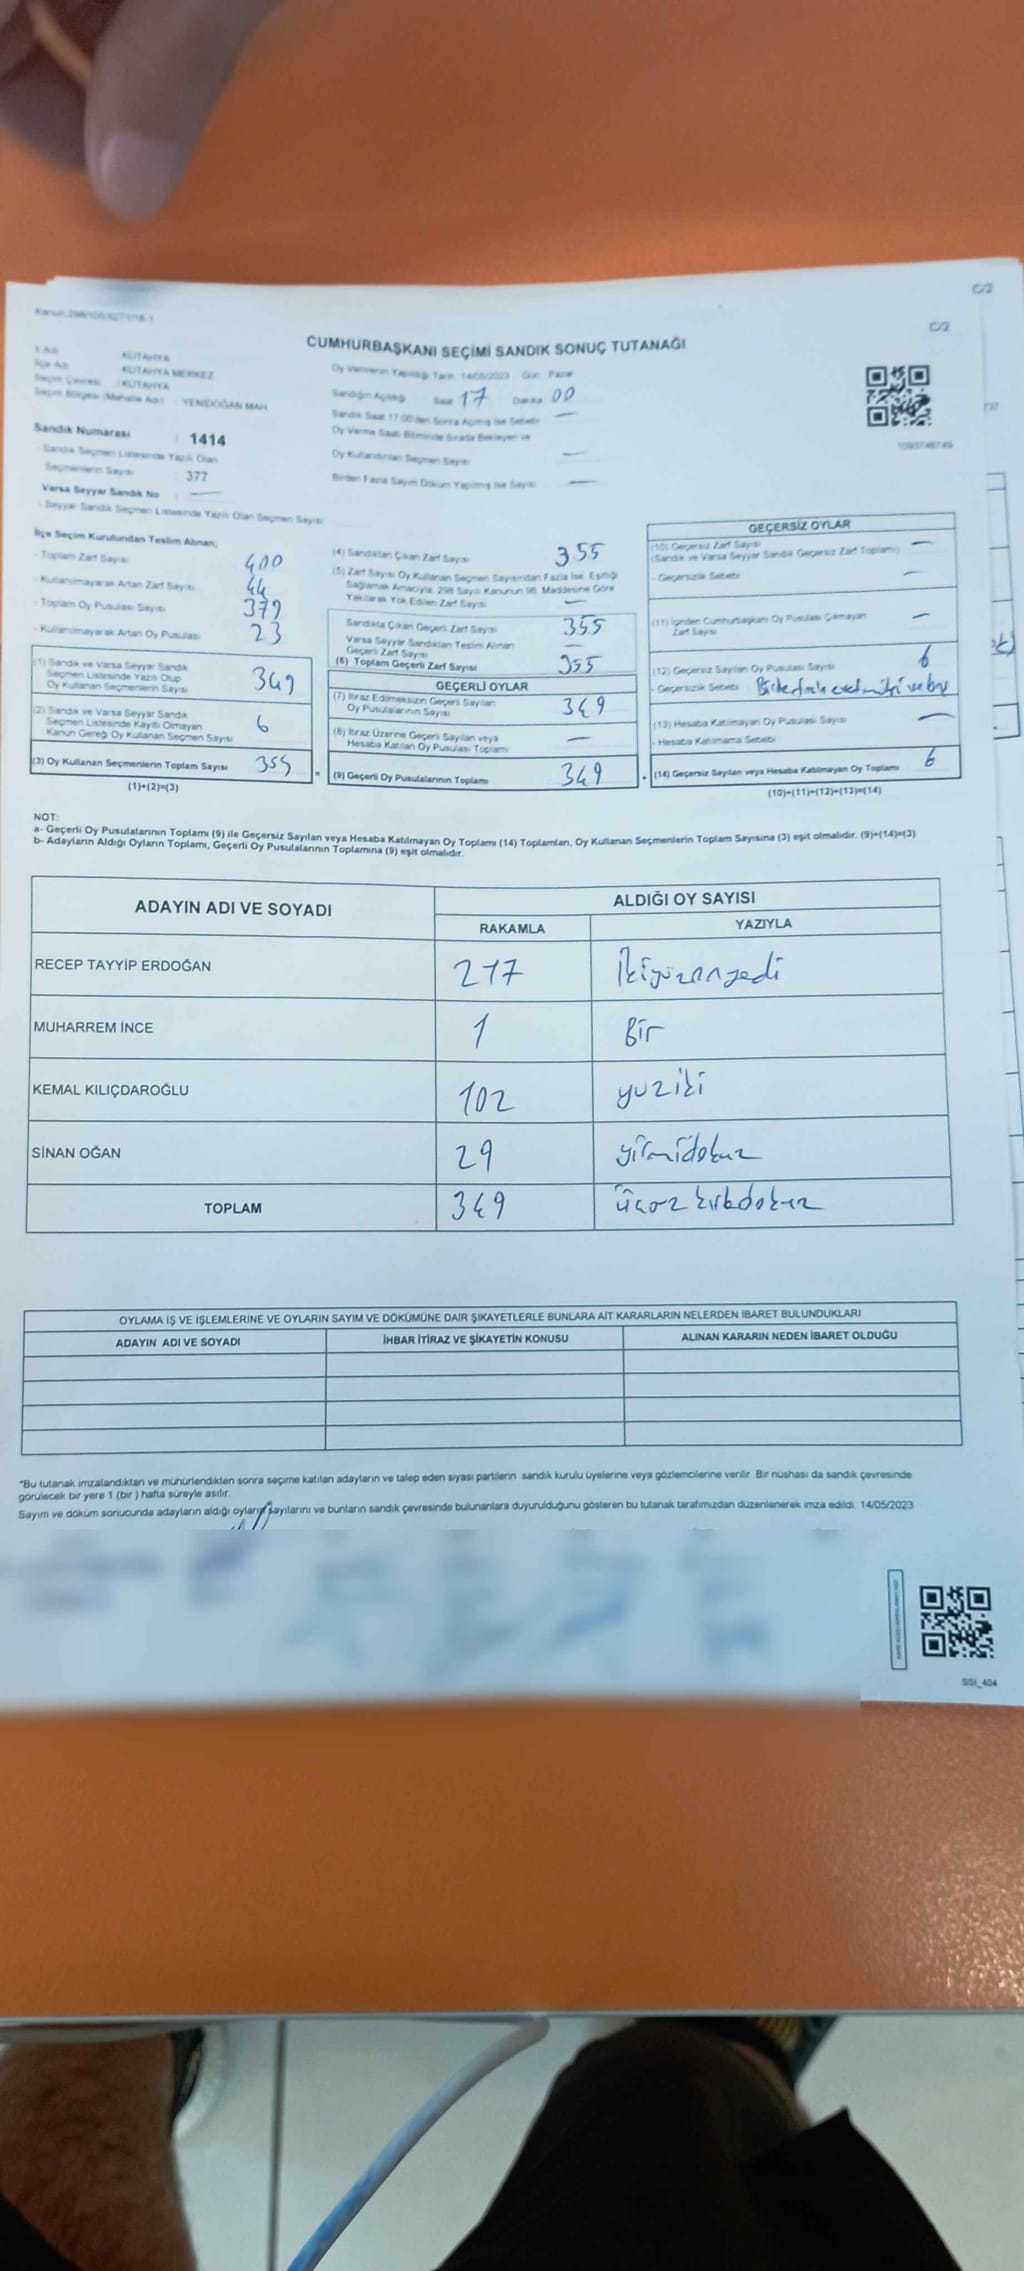 C/2
C/2
CUMHURBAŞKANI SEÇİMİ SANDIK SONUÇ TUTANAĞI
İl Adı KÜTAHYA
İlçe Adı KÜTAHYA MERKEZ
Seçim Çevresi : KÜTAHYA
Seçim Bölgesi (Mahalle Adı) : YENİDOĞAN MAH.
Sandık Numarası : 1414
- Sandık Seçmen Listesinde Yazılı Olan
Seçmenlerin Sayısı : 377
Varsa Seyyar Sandık No : —
- Seyyar Sandık Seçmen Listesinde Yazılı Olan Seçmen Sayısı:
Oy Vermenin Yapıldığı Tarih: 14/05/2023 Gün: Pazar
Sandığın Açıldığı Saat 17 Dakika 00
Sandık Saat 17:00'den Sonra Açılmış İse Sebebi —
Oy Verme Saati Bitiminde Sırada Bekleyen ve
Oy Kullandırılan Seçmen Sayısı —
Birden Fazla Sayım Döküm Yapılmış İse Sayısı —
İlçe Seçim Kurulundan Teslim Alınan;
- Toplam Zarf Sayısı 400
- Kullanılmayarak Artan Zarf Sayısı 44
- Toplam Oy Pusulası Sayısı 379
- Kullanılmayarak Artan Oy Pusulası 23
(1) Sandık ve Varsa Seyyar Sandık
Seçmen Listesinde Yazılı Olup
Oy Kullanan Seçmenlerin Sayısı 349
(2) Sandık ve Varsa Seyyar Sandık
Seçmen Listesinde Kayıtlı Olmayan
Kanun Gereği Oy Kullanan Seçmen Sayısı 6
(3) Oy Kullanan Seçmenlerin Toplam Sayısı 355
(1)+(2)=(3)
(4) Sandıktan Çıkan Zarf Sayısı 355
(5) Zarf Sayısı Oy Kullanan Seçmen Sayısından Fazla İse, Eşitliği
Sağlamak Amacıyla, 298 Sayılı Kanunun 98. Maddesine Göre
Yakılarak Yok Edilen Zarf Sayısı —
Sandıkta Çıkan Geçerli Zarf Sayısı 355
Varsa Seyyar Sandıktan Teslim Alınan
Geçerli Zarf Sayısı —
(6) Toplam Geçerli Zarf Sayısı 355
GEÇERLİ OYLAR
(7) İtiraz Edilmeksizin Geçerli Sayılan
Oy Pusulalarının Sayısı 349
(8) İtiraz Üzerine Geçerli Sayılan veya
Hesaba Katılan Oy Pusulası Toplamı —
(9) Geçerli Oy Pusulalarının Toplamı 349
GEÇERSİZ OYLAR
(10) Geçersiz Zarf Sayısı —
(Sandık ve Varsa Seyyar Sandık Geçersiz Zarf Toplamı)
- Geçersizlik Sebebi —
(11) İçinden Cumhurbaşkanı Oy Pusulası Çıkmayan
Zarf Sayısı —
(12) Geçersiz Sayılan Oy Pusulası Sayısı 6
- Geçersizlik Sebebi
(13) Hesaba Katılmayan Oy Pusulası Sayısı —
- Hesaba Katılmama Sebebi
(14) Geçersiz Sayılan veya Hesaba Katılmayan Oy Toplamı 6
(10)+(11)+(12)+(13)=(14)
NOT:
a- Geçerli Oy Pusulalarının Toplamı (9) ile Geçersiz Sayılan veya Hesaba Katılmayan Oy Toplamı (14) Toplamları, Oy Kullanan Seçmenlerin Toplam Sayısına (3) eşit olmalıdır. (9)+(14)=(3)
b- Adayların Aldığı Oyların Toplamı, Geçerli Oy Pusulalarının Toplamına (9) eşit olmalıdır.
ADAYIN ADI VE SOYADI ALDIĞI OY SAYISI
RAKAMLA YAZIYLA
RECEP TAYYİP ERDOĞAN 217 İkiyüzonyedi
MUHARREM İNCE 1 Bir
KEMAL KILIÇDAROĞLU 102 yüziki
SİNAN OĞAN 29 yirmidokuz
TOPLAM 349 üçyüz kırkdokuz
OYLAMA İŞ VE İŞLEMLERİNE VE OYLARIN SAYIM VE DÖKÜMÜNE DAİR ŞİKAYETLERLE BUNLARA AİT KARARLARIN NELERDEN İBARET BULUNDUKLARI
ADAYIN ADI VE SOYADI İHBAR İTİRAZ VE ŞİKAYETİN KONUSU ALINAN KARARIN NEDEN İBARET OLDUĞU
*Bu tutanak imzalandıktan ve mühürlendikten sonra seçime katılan adayların ve talep eden siyasi partilerin sandık kurulu üyelerine veya gözlemcilerine verilir. Bir nüshası da sandık çevresinde
görülecek bir yere 1 (bir ) hafta süreyle asılır.
Sayım ve döküm sonucunda adayların aldığı oyların sayılarını ve bunların sandık çevresinde bulunanlara duyurulduğunu gösteren bu tutanak tarafımızdan düzenlenerek imza edildi. 14/05/2023
SSI_404